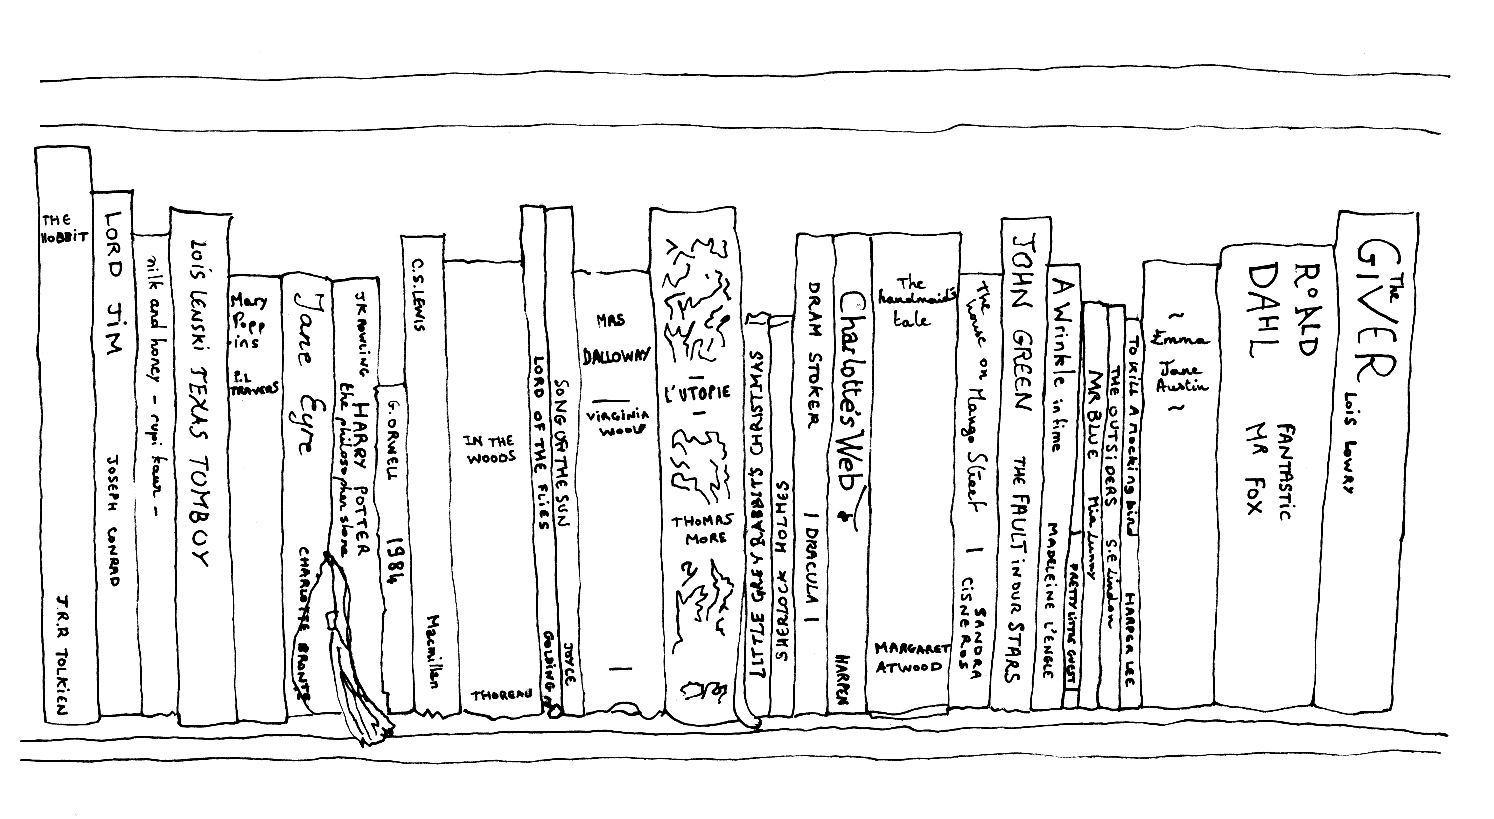 THE
HOBBIT
J.R.R TOLKIEN
LORD JIM
JOSEPH CONRAD
milk and honey - rupi kaur -
LOIS LENSKI TEXAS TOMBOY
Mary
Popp
-ins
P.L
TRAVERS
Jane Eyre
CHARLOTTE BRONTE
JK ROWLING
HARRY POTTER
the philosopher stone
G. ORWELL 1984
C.S. LEWIS
Macmillan
IN THE
WOODS
THOREAU
LORD OF THE FLIES
GOLDING
SONG OF THE SUN
JOYCE
MRS
DALLOWAY
VIRGINIA
WOOLF
L'UTOPIE
THOMAS
MORE
LITTLE GREY RABBIT'S CHRISTMAS
SHERLOCK HOLMES
DRAM STOKER | DRACULA |
Charlotte's Web
HARPER
The
handmaid's
tale
MARGARET
ATWOOD
The house on Mango Street |
SANDRA
CISNEROS
JOHN GREEN THE FAULT IN OUR STARS
A Wrinkle in time
MADELEINE L'ENGLE
PRETTY LITTLE GUEST
MR BLUE
THE OUTSIDERS S.E Lindon
TO KILL A MocKing bird HARPER LEE
~
Emma
Jane
Austin
~
ROALD
DAHL
FANTASTIC
MR FOX
The
GIVER
LOIS LOWRY